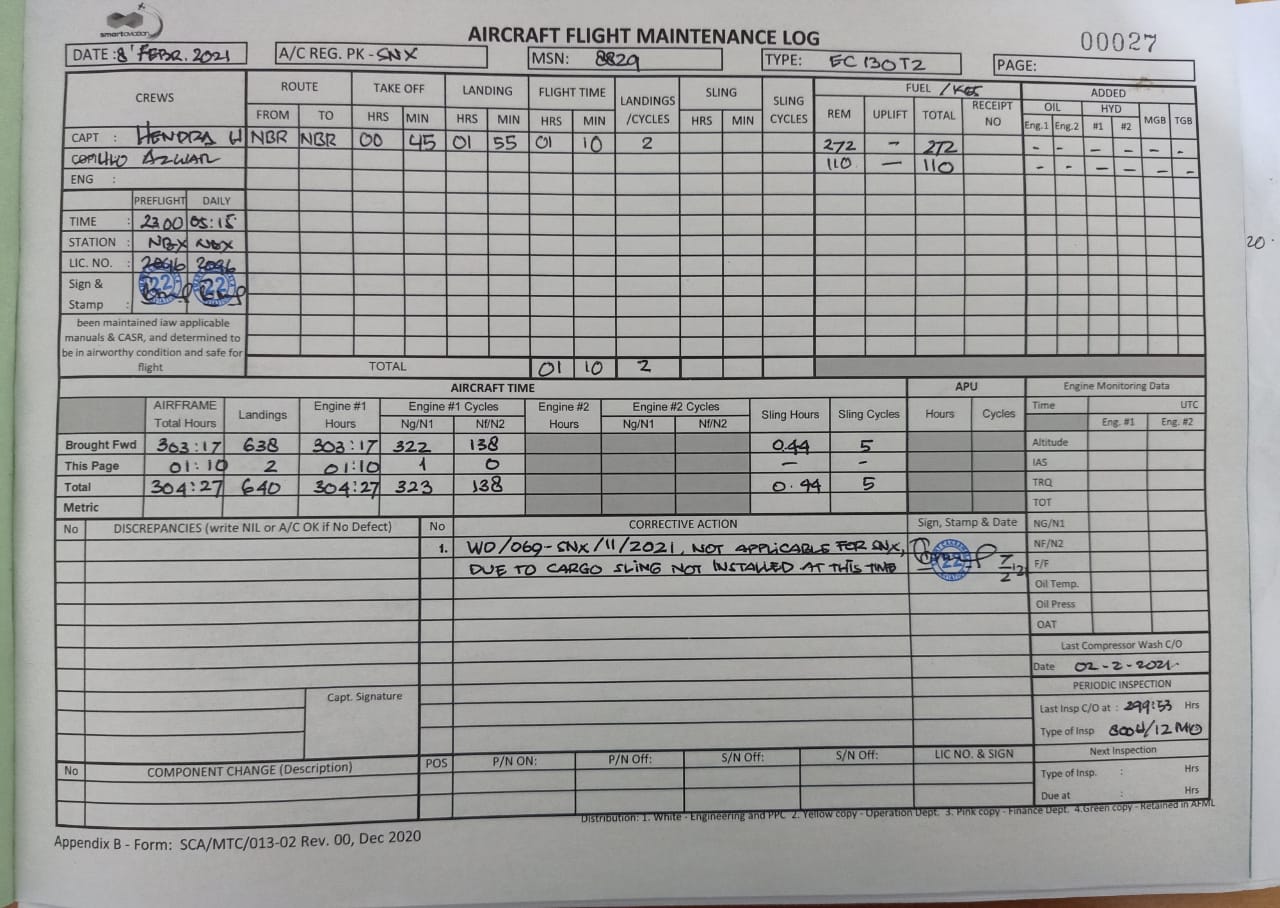 smartaviation
AIRCRAFT FLIGHT MAINTENANCE LOG
00027
DATE: 8 FEBR. 2021 A/C REG. PK - SNX MSN: 8829 TYPE: EC 130 T2 PAGE:
CREWS ROUTE TAKE OFF LANDING FLIGHT TIME LANDINGS /CYCLES SLING SLING CYCLES FUEL / KGS ADDED
FROM TO HRS MIN HRS MIN HRS MIN HRS MIN REM UPLIFT TOTAL RECEIPT NO OIL HYD MGB TGB
Eng.1 Eng.2 #1 #2
CAPT : HENDRA W NBR NBR 00 45 01 55 01 10 2 272 - 272 - - - - - -
AZWAR 110 - 110 - - - - - -
ENG :
PREFLIGHT DAILY
TIME : 23.00 05:15
STATION : NBX NBX
LIC. NO. : 2096 2096
Sign & Stamp : 22 22
been maintained iaw applicable
manuals & CASR, and determined to
be in airworthy condition and safe for
flight
TOTAL 01 10 2
AIRCRAFT TIME APU Engine Monitoring Data
AIRFRAME Total Hours Landings Engine #1 Hours Engine #1 Cycles Engine #2 Hours Engine #2 Cycles Sling Hours Sling Cycles Hours Cycles Time UTC
Ng/N1 Nf/N2 Ng/N1 Nf/N2 Eng. #1 Eng. #2
Brought Fwd 303:17 638 303:17 322 138 0.44 5 Altitude
This Page 01:10 2 01:10 1 0 - - IAS
Total 304:27 640 304:27 323 138 0.44 5 TRQ
Metric TOT
No DISCREPANCIES (write NIL or A/C OK if No Defect) No CORRECTIVE ACTION Sign, Stamp & Date NG/N1
1. WO/069-SNX/11/2021, NOT APPLICABLE FOR SNX, NF/N2
DUE TO CARGO SLING NOT INSTALLED AT THIS TIME 22 F/F
Oil Temp.
Oil Press
OAT
Last Compressor Wash C/O
Date 02-2-2021.
Capt. Signature PERIODIC INSPECTION
Last Insp C/O at : 299:53 Hrs
Type of Insp 800H/12 MO
No COMPONENT CHANGE (Description) POS P/N ON: P/N Off: S/N Off: S/N Off: LIC NO. & SIGN Next Inspection
Type of Insp. : Hrs
Due at : Hrs
Distribution: 1. White - Engineering and PPC 2. Yellow copy - Operation Dept. 3. Pink copy - Finance Dept. 4.Green copy - Retained in AFML
Appendix B - Form: SCA/MTC/013-02 Rev. 00, Dec 2020
20.